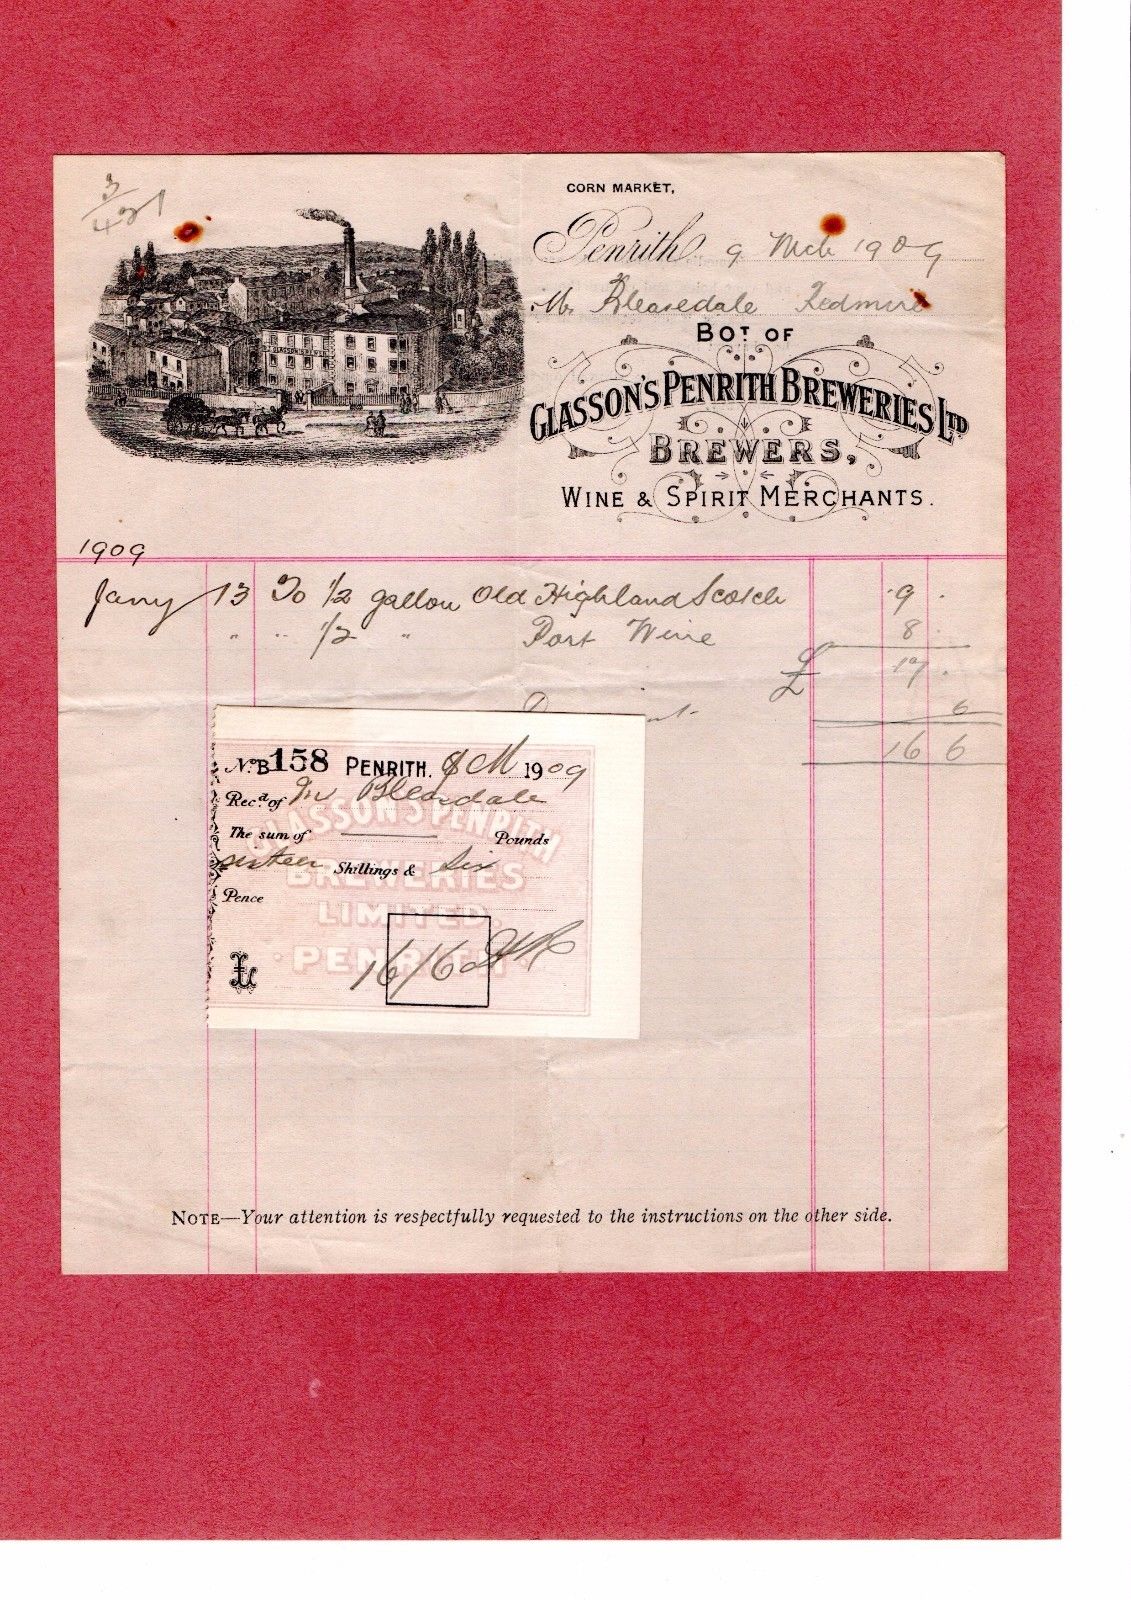 3/421
CORN MARKET,
Penrith 9 Mch 1909
Mr Bleasedale Redmire
BOT OF
GLASSON'S PENRITH BREWERIES LTD
BREWERS,
WINE & SPIRIT MERCHANTS.
GLASSON'S BREWERY
1909
Jany 13 To 1/2 gallon Old Highland Scotch 9 .
" " 1/2 " Port Wine 8 .
£ 17 .
6
16 6
No. B158 PENRITH, 9 M 1909
Recd. of Mr Bleasdale
The sum of ——— Pounds
sixteen Shillings & six
Pence
£ 16/6
GLASSON'S PENRITH
BREWERIES
LIMITED.
PENRITH.
NOTE—Your attention is respectfully requested to the instructions on the other side.